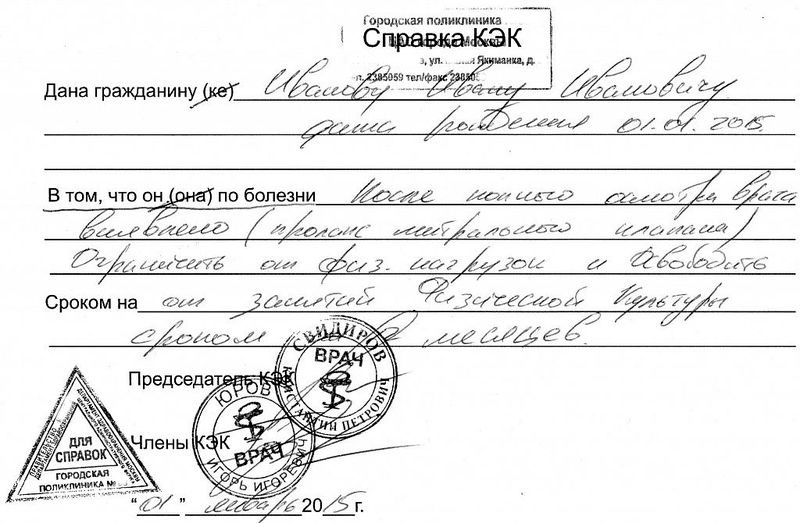 Городская поликлиника
Справка КЭК
города Москвы
ул. Якиманка, д.
2385059 тел/факс
Дана гражданину (ке) Иванову Ивану Ивановичу
дата рождения 01.01.2015.
В том, что он (она) по болезни После полного осмотра врача
выявлено (пролапс митрального клапана)
Ограничить от физ. нагрузок и Освободить
Сроком на от занятий Физической Культуры
сроком месяцев.
СВИДИРОВ
ВРАЧ
КОНСТАНТИН ПЕТРОВИЧ
Председатель КЭК
ЮРОВ
ВРАЧ
ИГОРЬ ИГОРЕВИЧ
Члены КЭК
ДЛЯ
СПРАВОК
ГОРОДСКАЯ
ПОЛИКЛИНИКА №
"01" январь 2015г.